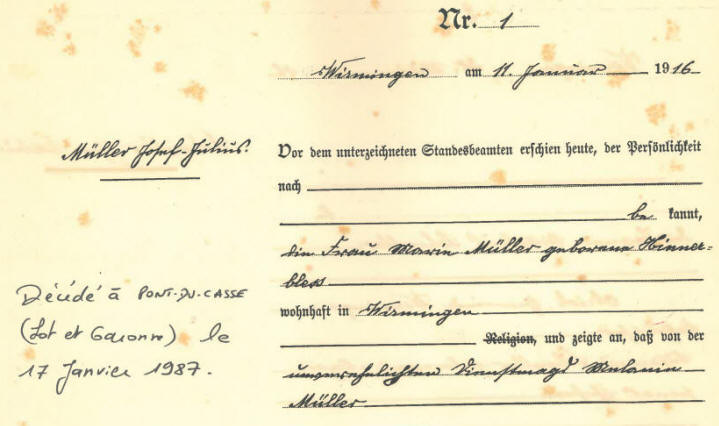 Nr. 1
Wirmingen am 11. Januar 1916
Müller Josef-Julius.
Vor dem unterzeichneten Standesbeamten erschien heute, der Persönlichkeit
nach
be kannt,
die Frau Marie Müller geborene Hinner=
bless
wohnhaft in Wirmingen
Religion, und zeigte an, daß von der
unverehelichten Dienstmagd Melanie
Müller
Décédé à PONT-DU-CASSE
(Lot et Garonne) le
17 Janvier 1987.